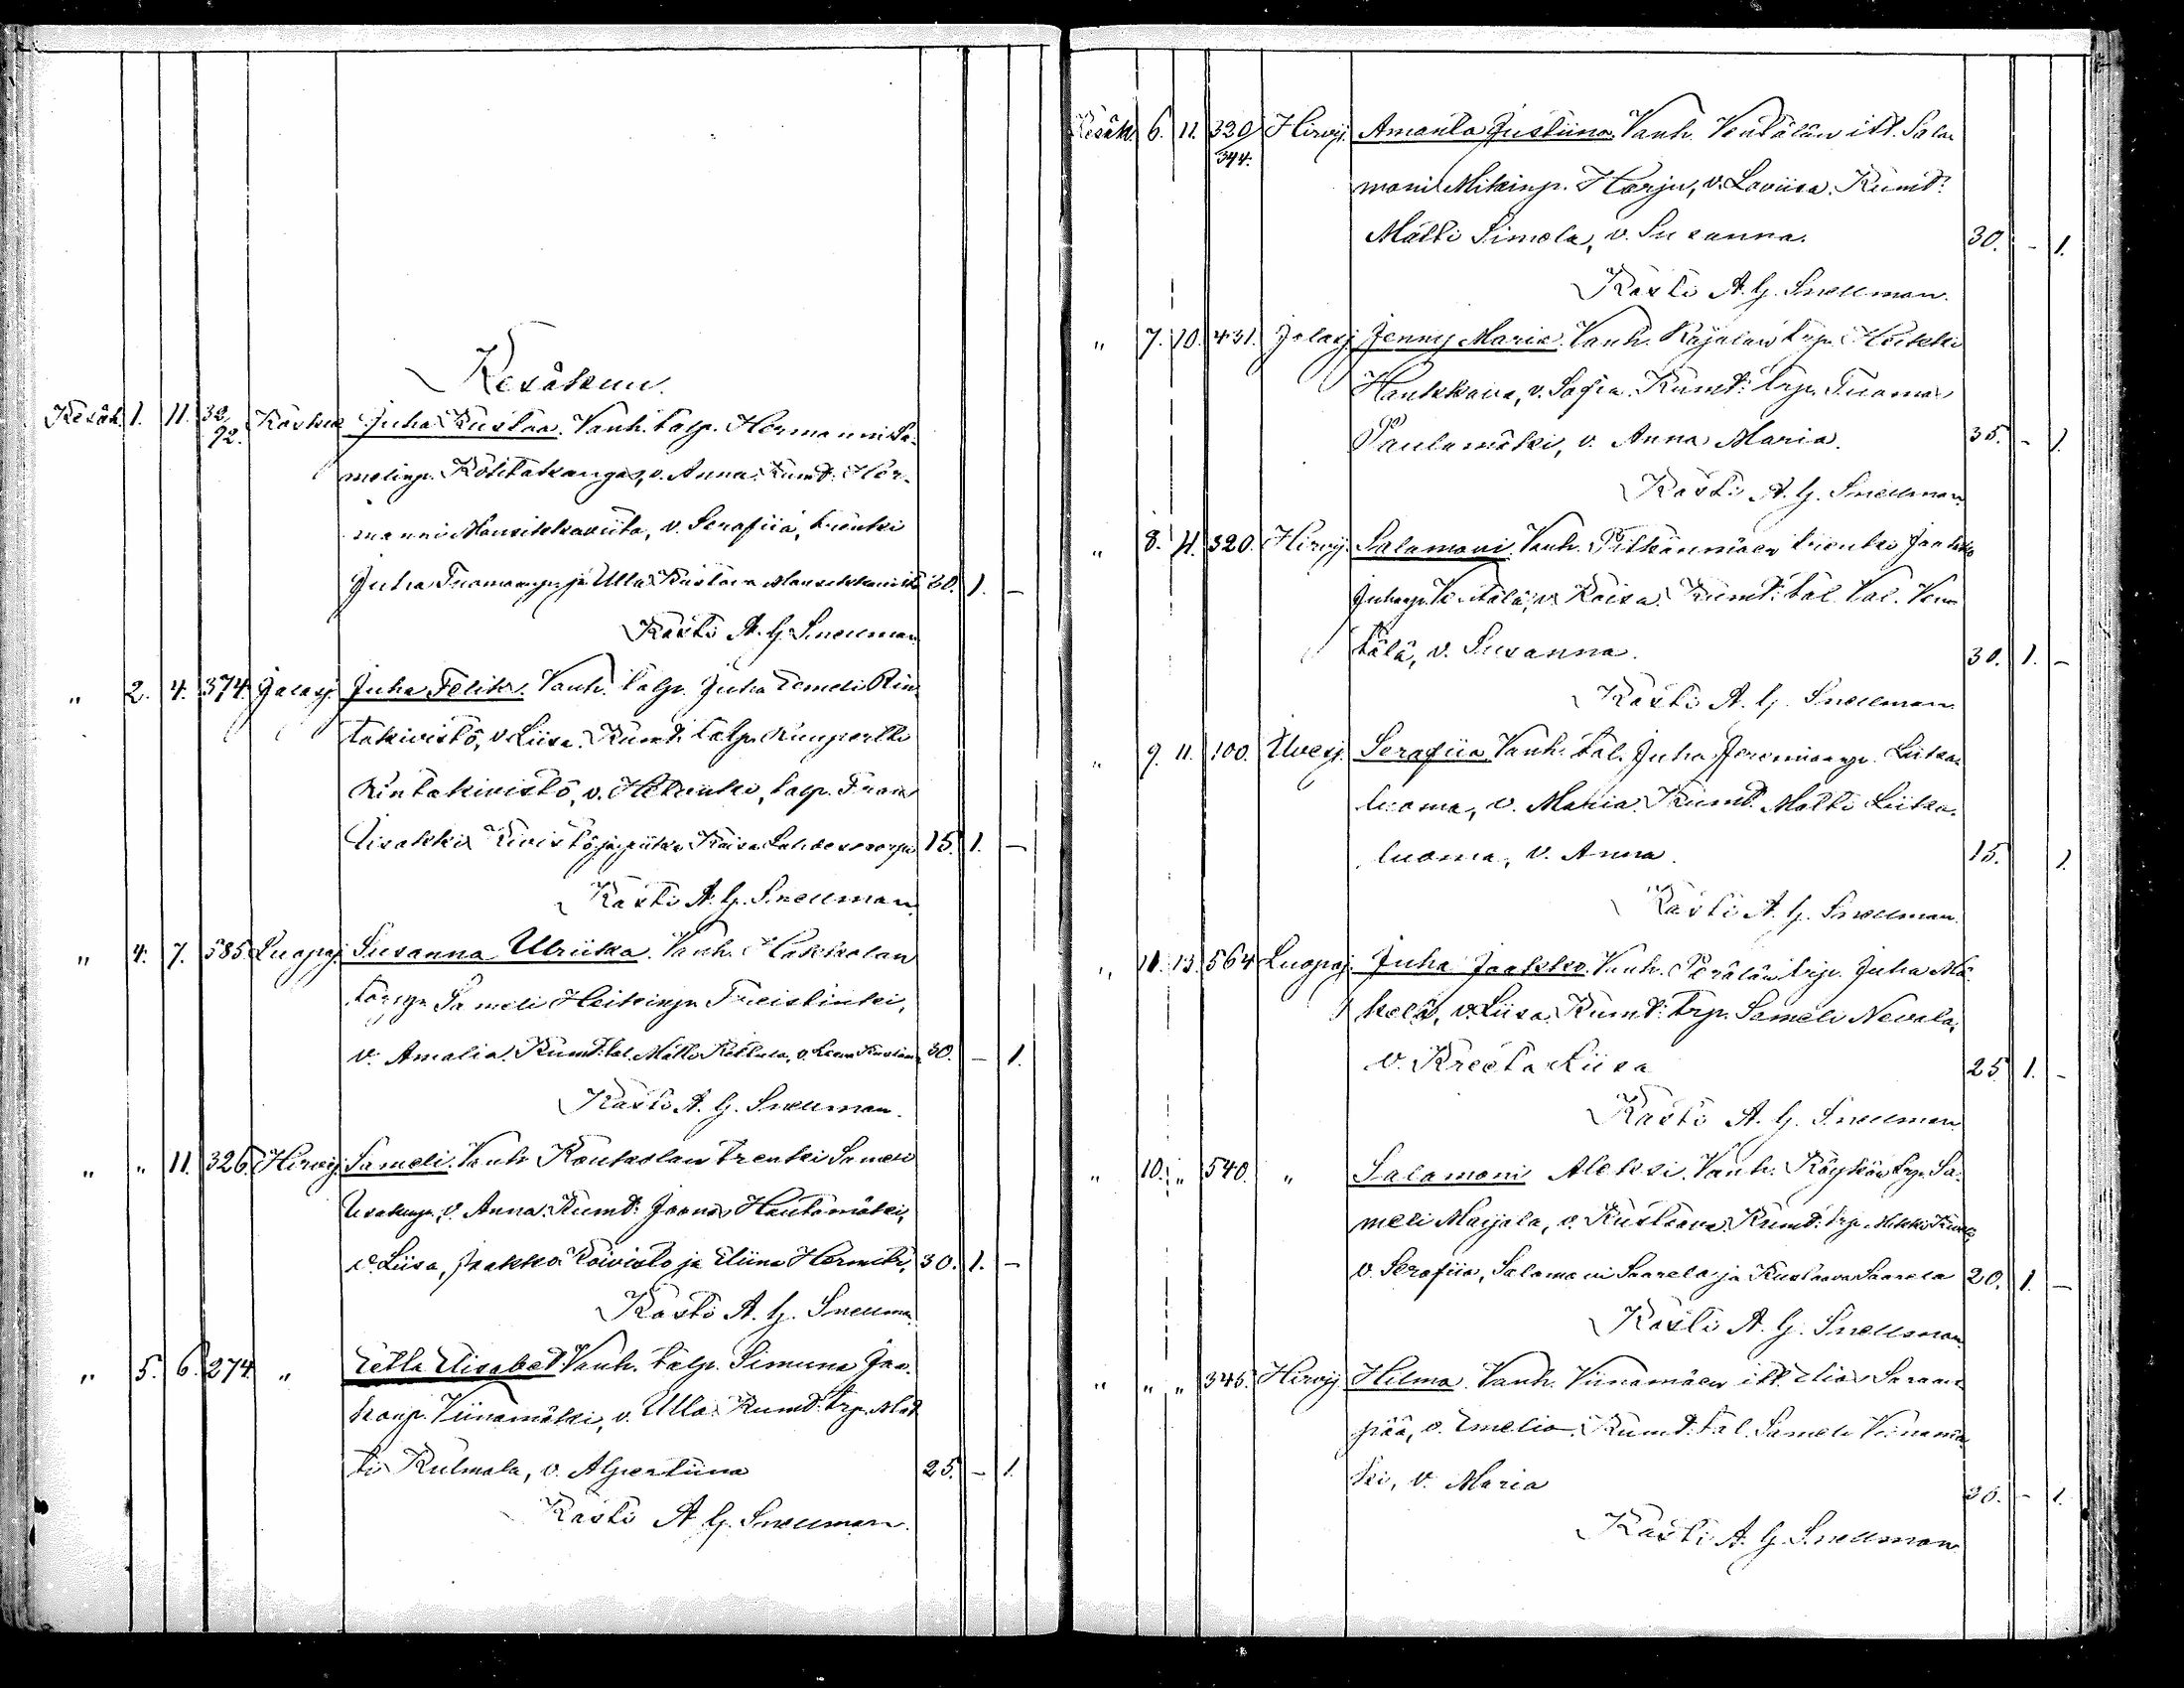 Kesäkuu.
Kesäk. 1. 11. 32/92. Koskue Juha Kustaa. Vanh. talp. Hermanni Sa-
melinp. Kohtakangas, v. Anna. Kumt: Her-
manni Mansikkaviita, v. Serafiia, trenki
Juha Tuomaanp. ja Ulla Kustava Mansikkaviita 30. 1. –
Kasti A. G. Snellman.
" 2. 4. 374. Jalasj. Juha Feliks. Vanh. talp. Juha Eemeli Rin-
takivistö, v. Liisa. Kumt: talp. Ruupertti
Rintakivistö, v. Helunki, talp. Frans
Iisakki Kivistö ja piika Kaisa 15. 1. –
Kasti A. G. Snellman.
" 4. 7. 585. Luopaj. Susanna Ulriika. Vanh. Hakkolan
Sameli Heikinp.
v. Amalia. Kumt: tal. Matti Kettula, v. 30. – 1.
Kasti A. G. Snellman.
" " 11. 326. Hirvij. Sameli. Vanh. Koukolan trenki Sameli
Iisakinp., v. Anna. Kumt: Joonas Hautamäki,
v. Liisa, Jaakko Koivisto ja Eliina 30. 1. –
Kasti A. G. Snellman
" 5. 6. 274. " Eetla Elisabet. Vanh. talp. Simuna Jaa-
konp. Viinamäki, v. Ulla. Kumt: trp. Mat-
ti Kulmala, v. Alpertiina 25. – 1.
Kasti A. G. Snellman.
Kesäk. 6. 11. 320/344. Hirvij. Amanta Justiina. Vanh. Ventälän itl. Sala-
moni Mikinp. Harju, v. Loviisa. Kumt:
Matti Simola, v. Susanna. 30. – 1.
Kasti A. G. Snellman.
" 7. 10. 431. Jalasj. Jenny Maria. Vanh. Rajalan trp. Heikki
Haukkala, v. Sofia. Kumt: trp. Tuomas
Paulamäki, v. Anna Maria. 35. – 1.
Kasti A. G. Snellman
" 8. 11. 320. Hirvij. Salamoni. Vanh. Pitkänmäen trenki Jaakko
Juhanp. Ventälä, v. Kaisa. Kumt: tal. Ven-
tälä, v. Susanna. 30. 1. –
Kasti A. G. Snellman
" 9. 11. 100. Ilvesj. Serafiia. Vanh. tal. Juha Jeremiaanp. Liika-
luoma, v. Maria. Kumt: Matti Liika-
luoma, v. Anna. 15. 1.
Kasti A. G. Snellman.
" 11. 13. 564. Luopaj. Juha Jaakko. Vanh. Perälän trp. Juha Mä-
kelä, v. Liisa. Kumt: trp. Sameli Nevala,
v. Kreeta Liisa 25. 1. –
Kasti A. G. Snellman
" 10. " 540. " Salamoni Aleksi. Vanh. Köykän trp. Sa-
meli Marjala, v. Kustaava. Kumt: trp.
v. Serafiia, Salamoni Saarela ja Kustaava Saarela 20. 1. –
Kasti A. G. Snellman
" " " 345. Hirvij. Hilma. Vanh. Viinamäen itl. Elias Saraan-
pää, v. Emelia. Kumt: tal. Sameli Viinamä-
ki, v. Maria 30. – 1.
Kasti A. G. Snellman